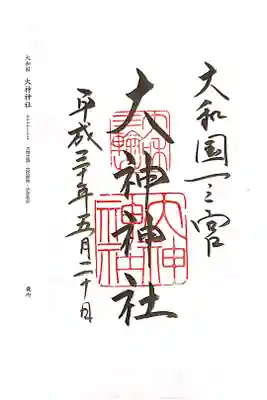 大和国一之宮
大神神社
平成三十年五月二十日
三輪
明神
大神
神社
大和国 大神神社